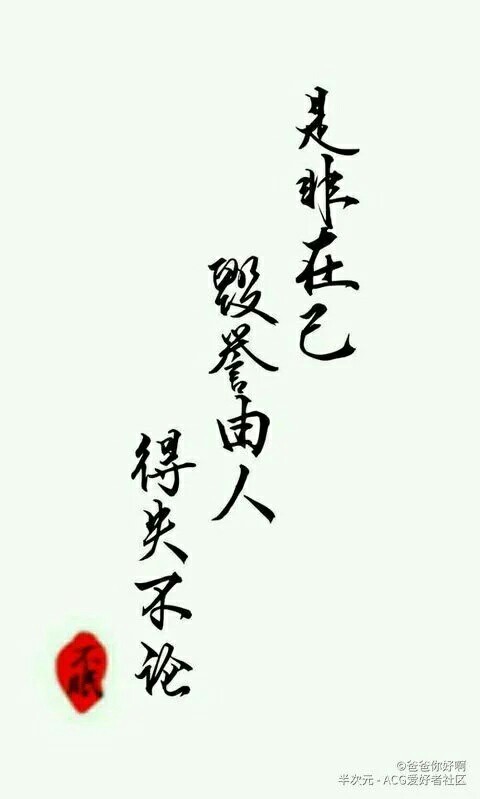 是非在己
毁誉由人
得失不论
不眠
©爸爸你好啊
半次元 - ACG爱好者社区